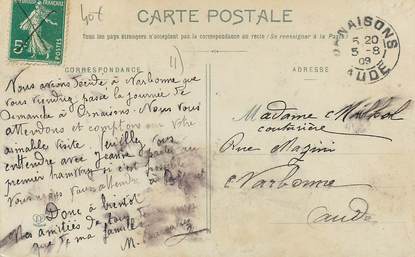 40t
CARTE POSTALE
Tous les pays étrangers n'acceptent pas la correspondance au recto (Se renseigner à la Poste)
5
ORNAISONS
5 20
5-8
09
AUDE
CORRESPONDANCE
ADRESSE
Nous avions décidé, à Narbonne que
vous viendriez passer la journée de
Dimanche à Ornaisons. Nous vous
attendons et comptons sur votre
aimable visite. Veuillez vous
entendre avec Jeanne
premier
nous attendre
Donc à bientôt
Mes amitiés de tous
que de ma famille
M.
Madame
couturière
Rue Magini
Narbonne
Aude